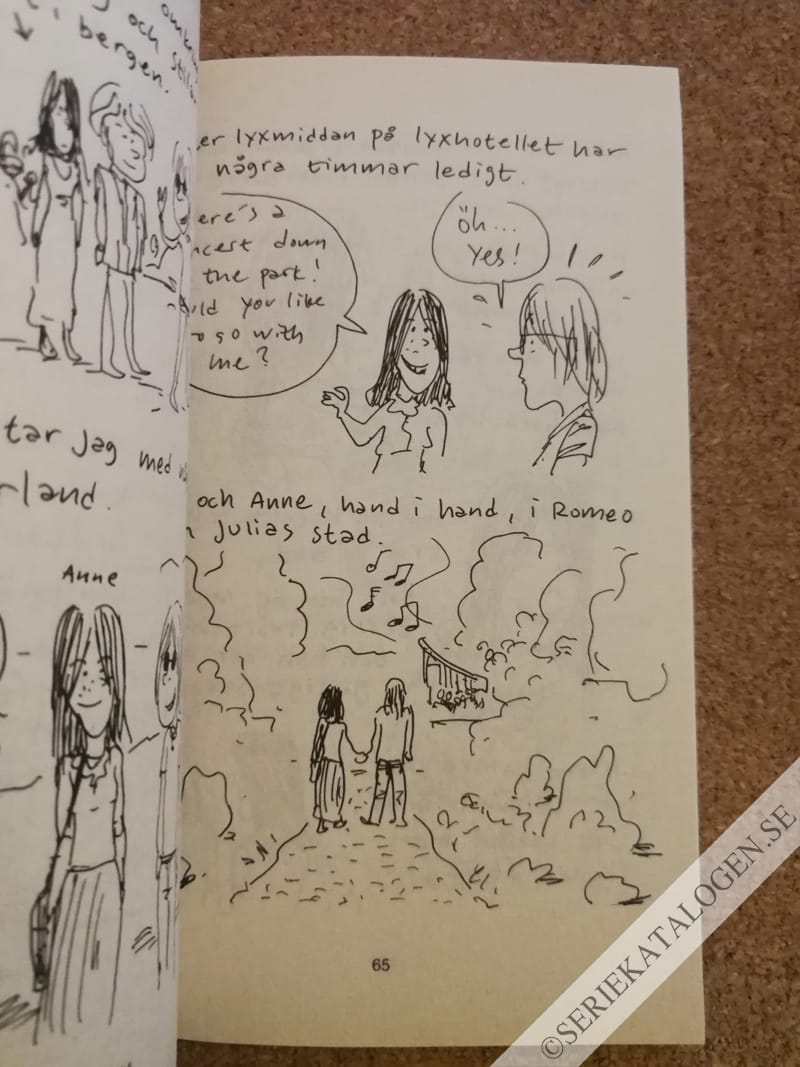 och
bergen.
tar jag med
rland.
Anne
er lyxmiddan på lyxhotellet har
några timmar ledigt.
ere's a
ncert down
the park!
uld you like
o go with
me?
öh...
yes!
och Anne, hand i hand, i Romeo
Julias stad.
65
©SERIEKATALOGEN.SE